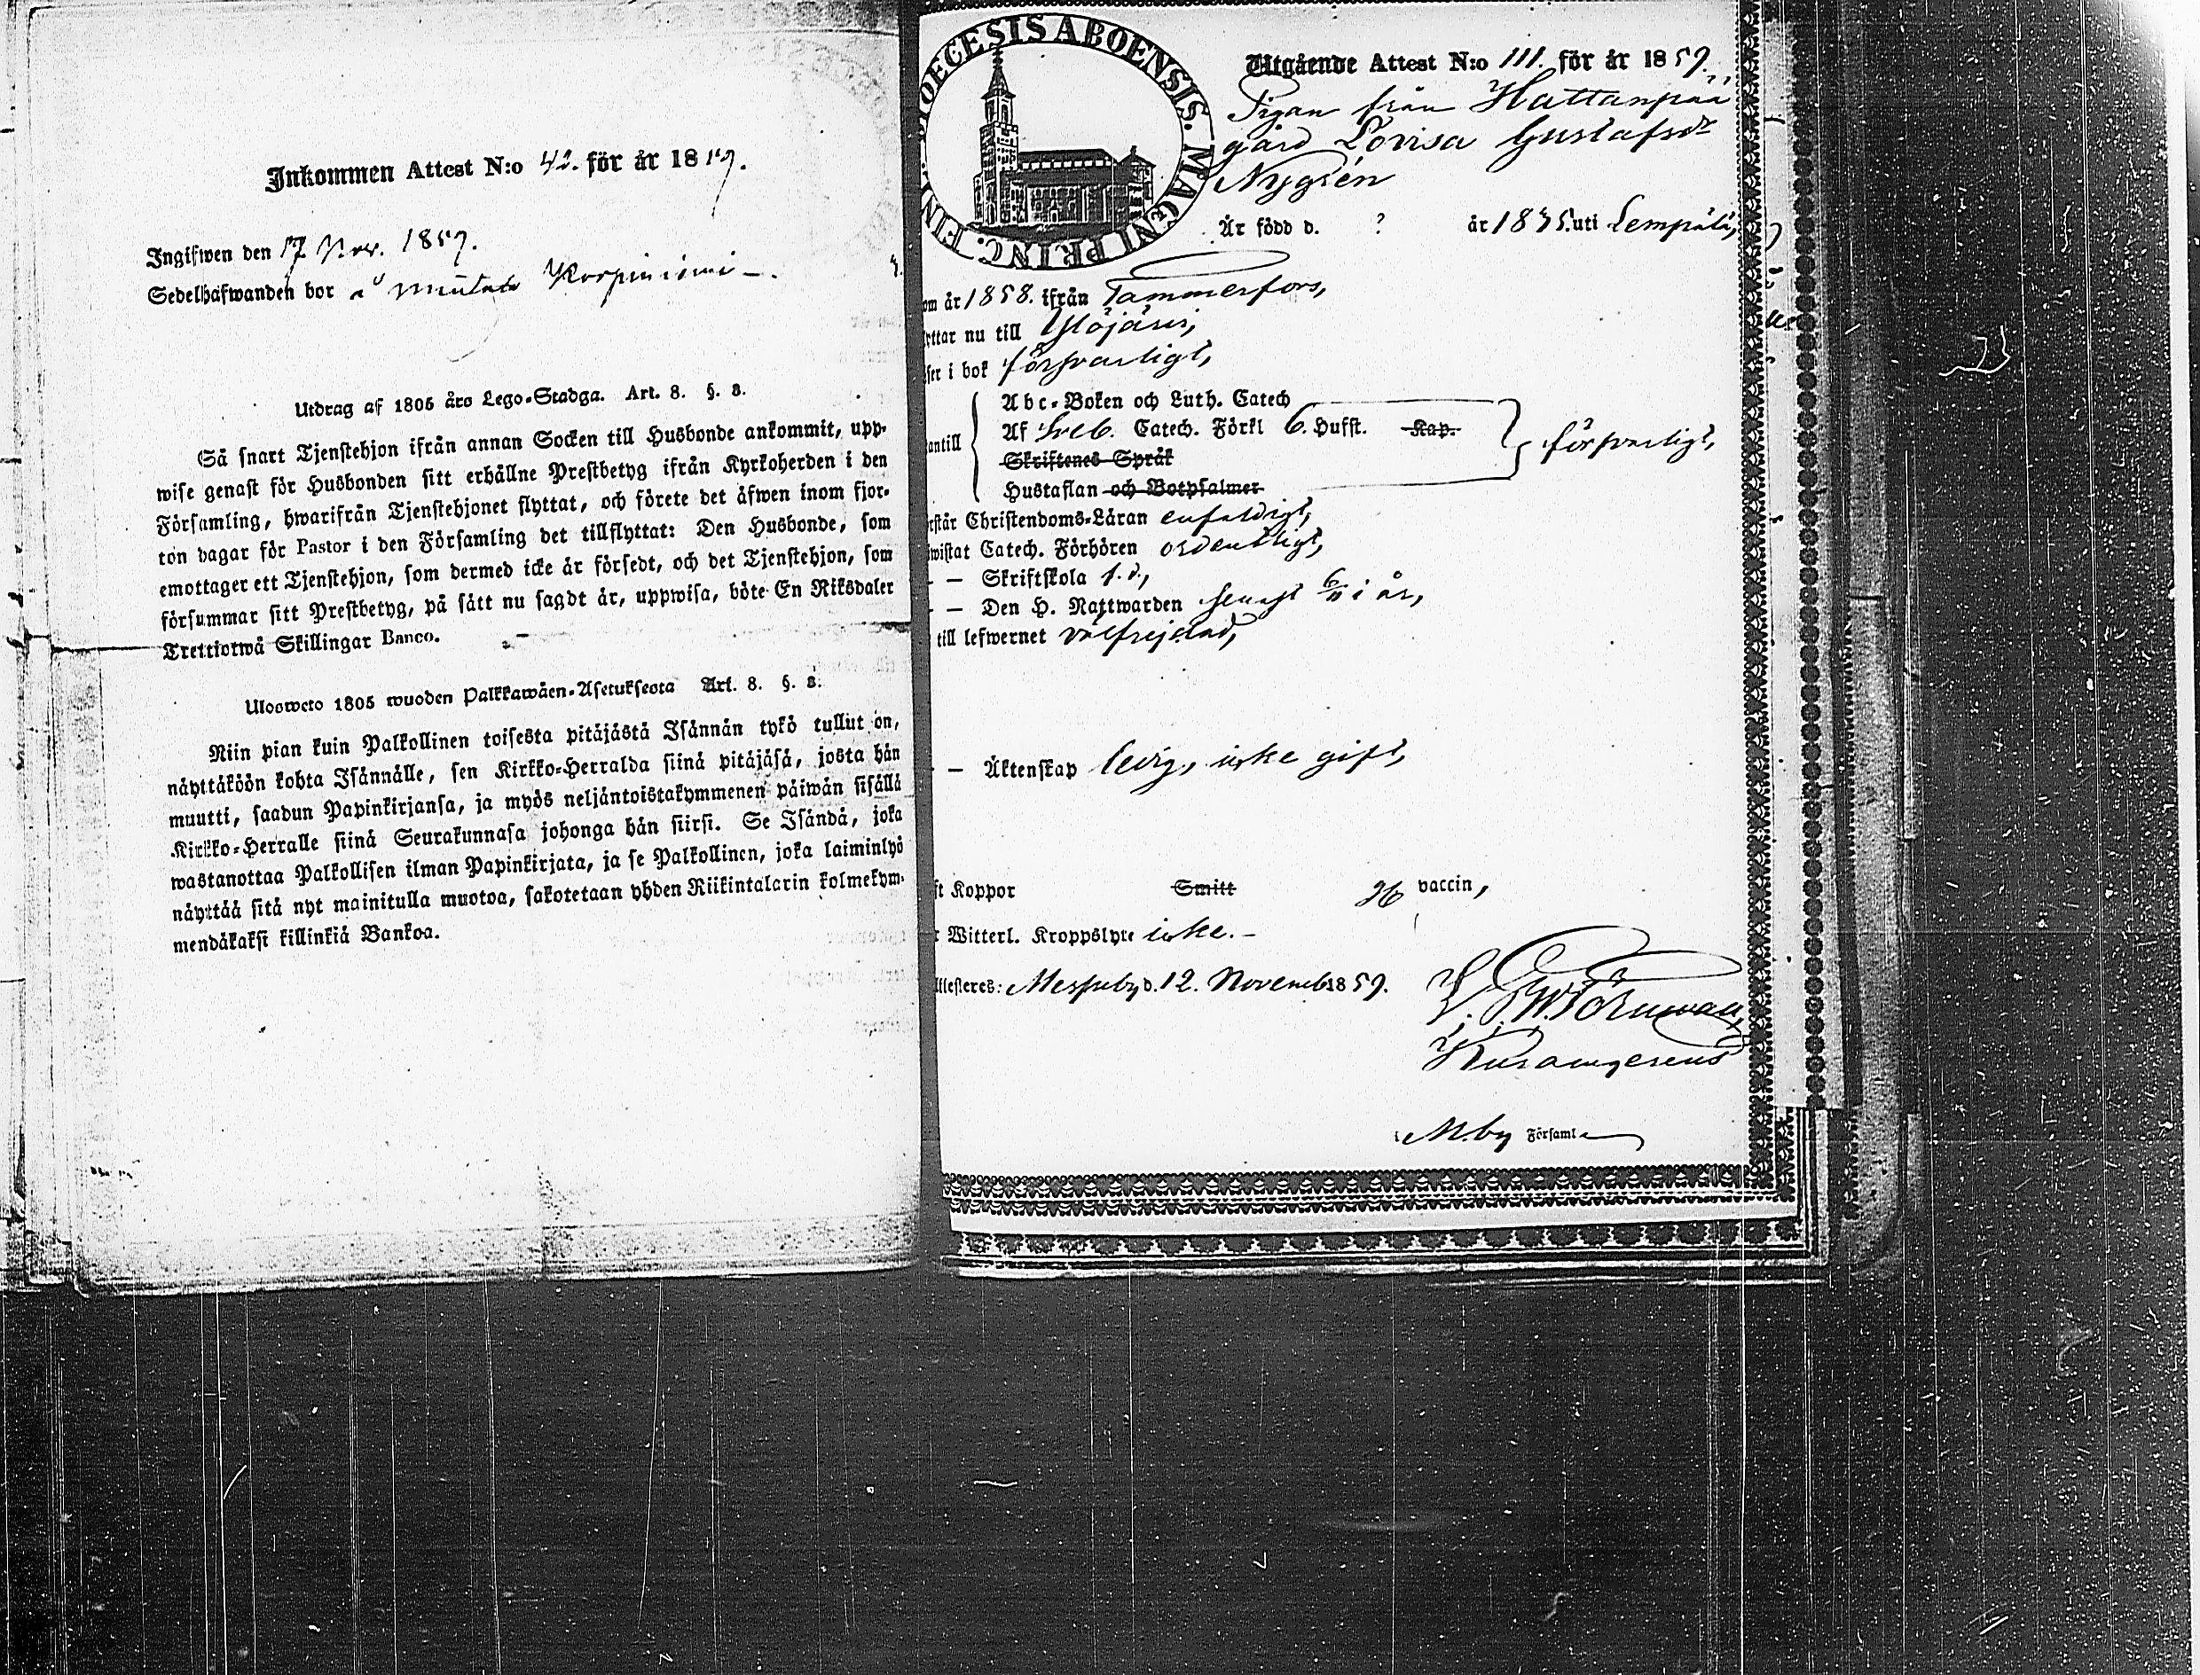 Inkommen Attest N:o 42. för år 1859.
Ingifwen den 17 Nov. 1859.
Sedelhafwanden bor å Korpiniemi
Utdrag af 1805 års Lego-Stadga. Art. 8. §. 3.
Så snart Tjenstehjon ifrån annan Socken till Husbonde ankommit, upp-
wise genast för Husbonden sitt erhållne Prestbetyg ifrån Kyrkoherden i den
Församling, hwarifrån Tjenstehjonet flyttat, och förete det äfwen inom fjor-
ton dagar för Pastor i den Församling det tillflyttat: Den Husbonde, som
emottager ett Tjenstehjon, som dermed icke är försedt, och det Tjenstehjon, som
försummar sitt Prestbetyg, på sätt nu sagdt är, uppwisa, böte En Riksdaler
Trettiotwå Skillingar Banco.
Ulosweto 1805 wuoden Palkkawäen-Asetuksesta Art. 8. §. 3.
Niin pian kuin Palkollinen toisesta pitäjästä Isännän tykö tullut on,
näyttäköön kohta Isännälle, sen Kirkko-Herralda siinä pitäjäsä, josta hän
muutti, saadun Papinkirjansa, ja myös neljäntoistakymmenen päiwän sisällä
Kirkko-Herralle siinä Seurakunnasa johonga hän siirsi. Se Isändä, joka
wastanottaa Palkollisen ilman Papinkirjata, ja se Palkollinen, joka laiminlyö
näyttää sitä nyt mainitulla muotoa, sakotetaan yhden Riikintalarin kolmekym-
mendäkaksi killinkiä Bankoa.
DIOECESIS ABOENSIS. MAGNI PRINC. FINL.
Utgående Attest N:o 111. för år 1859.
Pigan från Hattanpää
gård Lovisa Gustafsdr
Nygrén
Är född d. ? år 1835. uti Lempälä,
om år 1858. ifrån Tammerfors,
yttar nu till Ylöjärvi,
ser i bok försvarligt,
Abc-Boken och Luth. Catech
antill Af Sveb. Catech. Förkl 6. Hufst. Kap. försvarligt,
Skriftenes Språk
Hustaflan och Botpsalmer
rstår Christendoms-Läran enfaldigt,
wistat Catech. Förhören ordentligt,
- - Skriftskola s. d.,
- - Den H. Nattwarden senast 6/11 i år,
till lefwernet välfrejdad,
- - Äktenskap ledig, icke gift,
ft Koppor Smitt vaccin,
r Witterl. Kroppslyte icke. -
Attesteres: Messuby d. 12. Novemb 1859.
Törnwall
M:by Församl